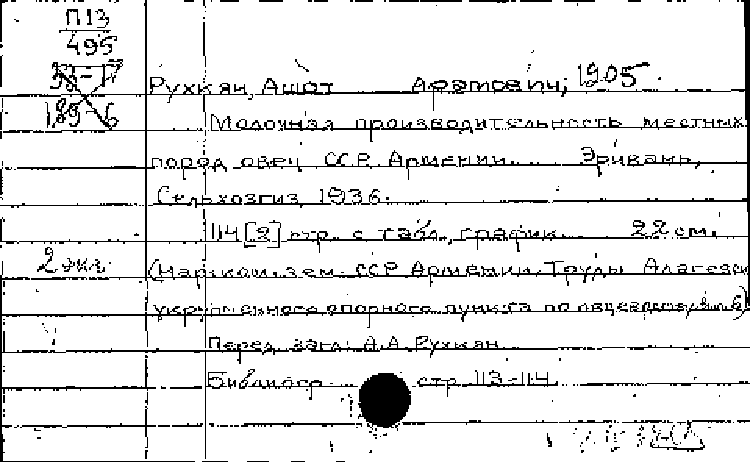 П13
495
53-17
189-6
Рухкян, Ашот Арамович, 1905.
Молочная производительность местных
пород овец ССР Армении. Эривань,
Сельхозгиз, 1936.
114 [2] стр. с табл., график. 22 см.
2 экз.
(Нарком. зем. ССР Армении. Труды Алагезск
укрупненного опорного пункта по овцеводству,
Перед загл.: А.А. Рухкян
Библиогр. стр. 113-114